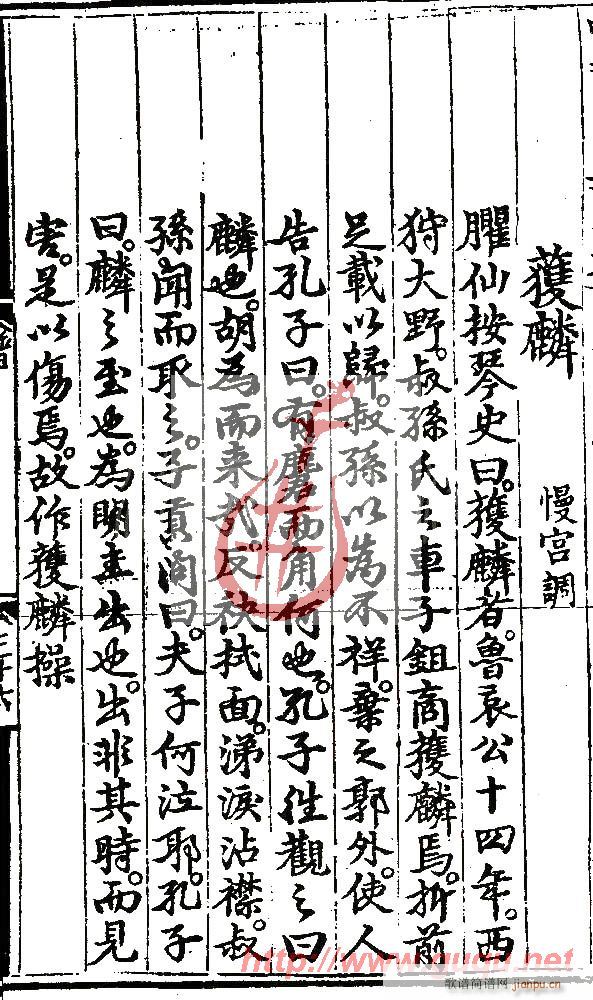 獲麟 慢宮調
臞仙按琴史曰。獲麟者。魯哀公十四年。西
狩大野。叔孫氏之車子鉏商獲麟焉。折前
足載以歸。叔孫以為不祥。棄之郭外。使人
告孔子曰。有麏而角何也。孔子往觀之曰
麟也。胡為而来哉。反袂拭面。涕淚沾襟。叔
孫聞而取之。子貢問曰。夫子何泣耶。孔子
曰。麟之至也。為明王出也。出非其時。而見
害。是以傷焉。故作獲麟操
http://www.guqu.net
歌谱简谱网 jianpu.cn